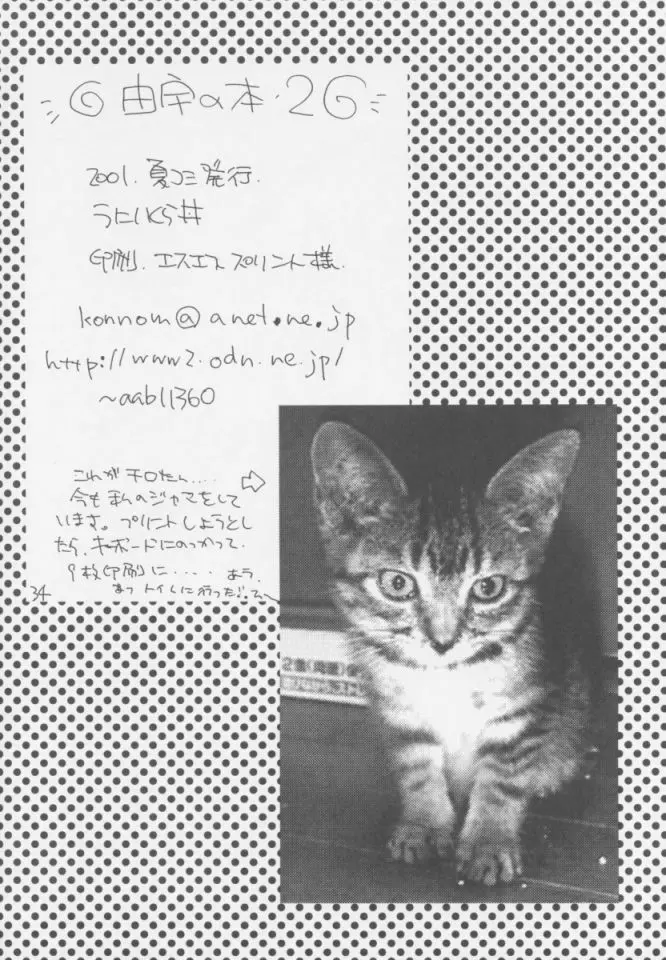 由宇の本・2
2001.夏コミ発行.
うにいくら丼
印刷.エスエスプリント様.
konnom@anet.ne.jp
http://www2.odn.ne.jp/
~aab11360
これがチロたん....
今もまんのジャマをして
います。プリントしようとし
たら、キーボードにのっかって.
9枚印刷に.... あう.
あっトイレに行った
34